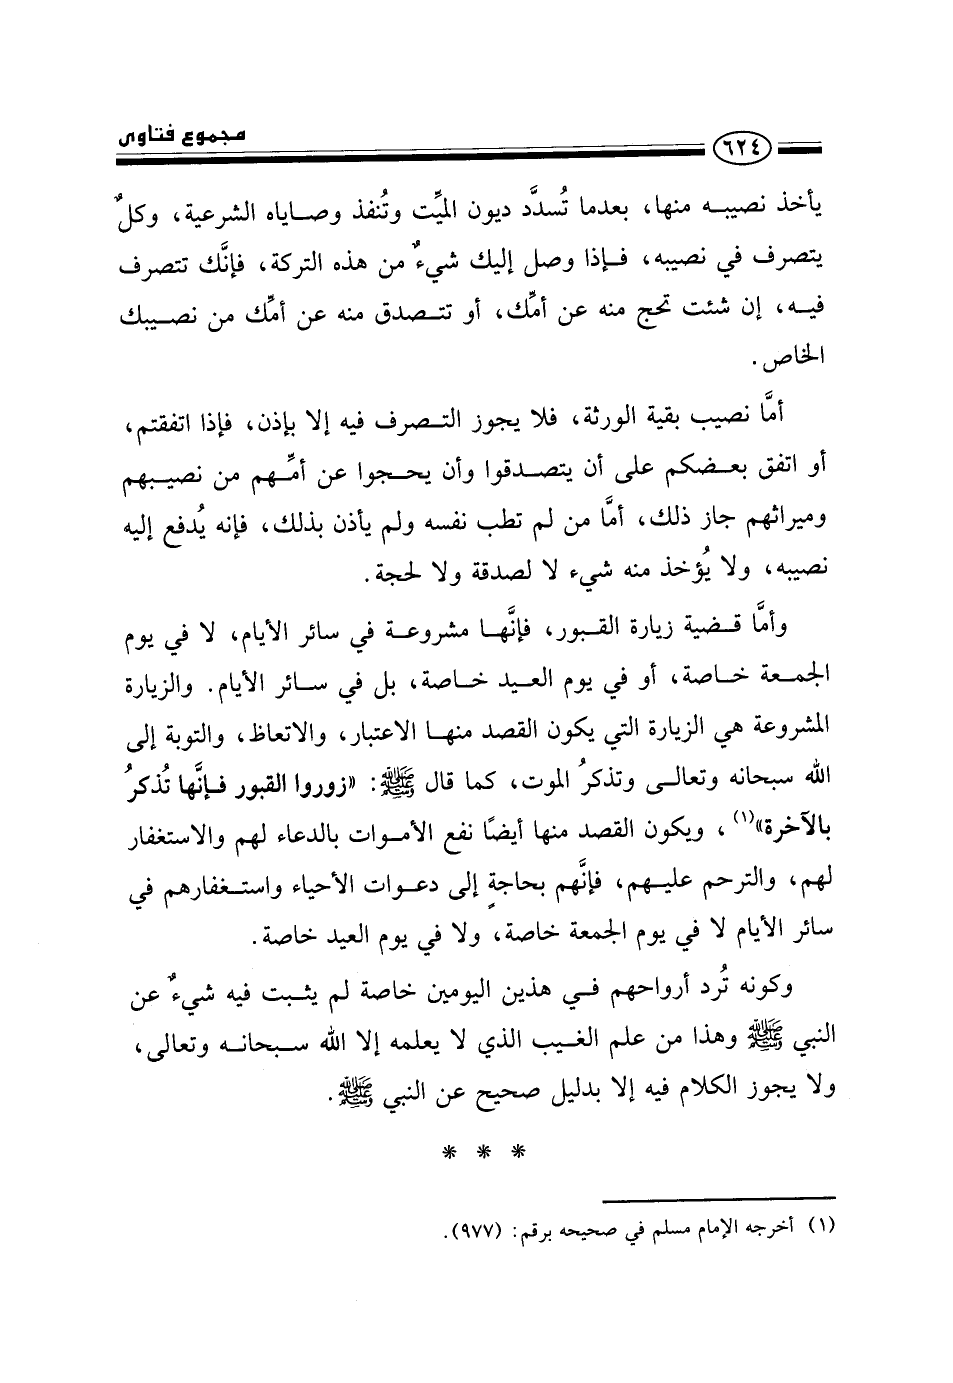 مجموع فتاوى
٦٢٤
يأخذ نصيبه منها، بعدما تُسدَّد ديون الميِّت وتُنفذ وصاياه الشرعية، وكلٌ
يتصرف في نصيبه، فإذا وصل إليك شيءٌ من هذه التركة، فإنَّك تتصرف
فيه، إن شئت تحج منه عن أمِّك، أو تتصدق منه عن أمِّك من نصيبك
الخاص.
أمَّا نصيب بقية الورثة، فلا يجوز التصرف فيه إلا بإذن، فإذا اتفقتم،
أو اتفق بعضكم على أن يتصدقوا وأن يحجوا عن أمِّهم من نصيبهم
وميراثهم جاز ذلك، أمَّا من لم تطب نفسه ولم يأذن بذلك، فإنه يُدفع إليه
نصيبه، ولا يُؤخذ منه شيء لا لصدقة ولا لحجة.
وأمَّا قضية زيارة القبور، فإنَّها مشروعة في سائر الأيام، لا في يوم
الجمعة خاصة، أو في يوم العيد خاصة، بل في سائر الأيام. والزيارة
المشروعة هي الزيارة التي يكون القصد منها الاعتبار، والاتعاظ، والتوبة إلى
الله سبحانه وتعالى وتذكرُ الموت، كما قال ﷺ: «زوروا القبور فإنَّها تُذكرُ
بالآخرة»(١)، ويكون القصد منها أيضًا نفع الأموات بالدعاء لهم والاستغفار
لهم، والترحم عليهم، فإنَّهم بحاجةٍ إلى دعوات الأحياء واستغفارهم في
سائر الأيام لا في يوم الجمعة خاصة، ولا في يوم العيد خاصة.
وكونه تُرد أرواحهم في هذين اليومين خاصة لم يثبت فيه شيءٌ عن
النبي ﷺ وهذا من علم الغيب الذي لا يعلمه إلا الله سبحانه وتعالى،
ولا يجوز الكلام فيه إلا بدليل صحيح عن النبي ﷺ.
* * *
(١) أخرجه الإمام مسلم في صحيحه برقم: (٩٧٧).